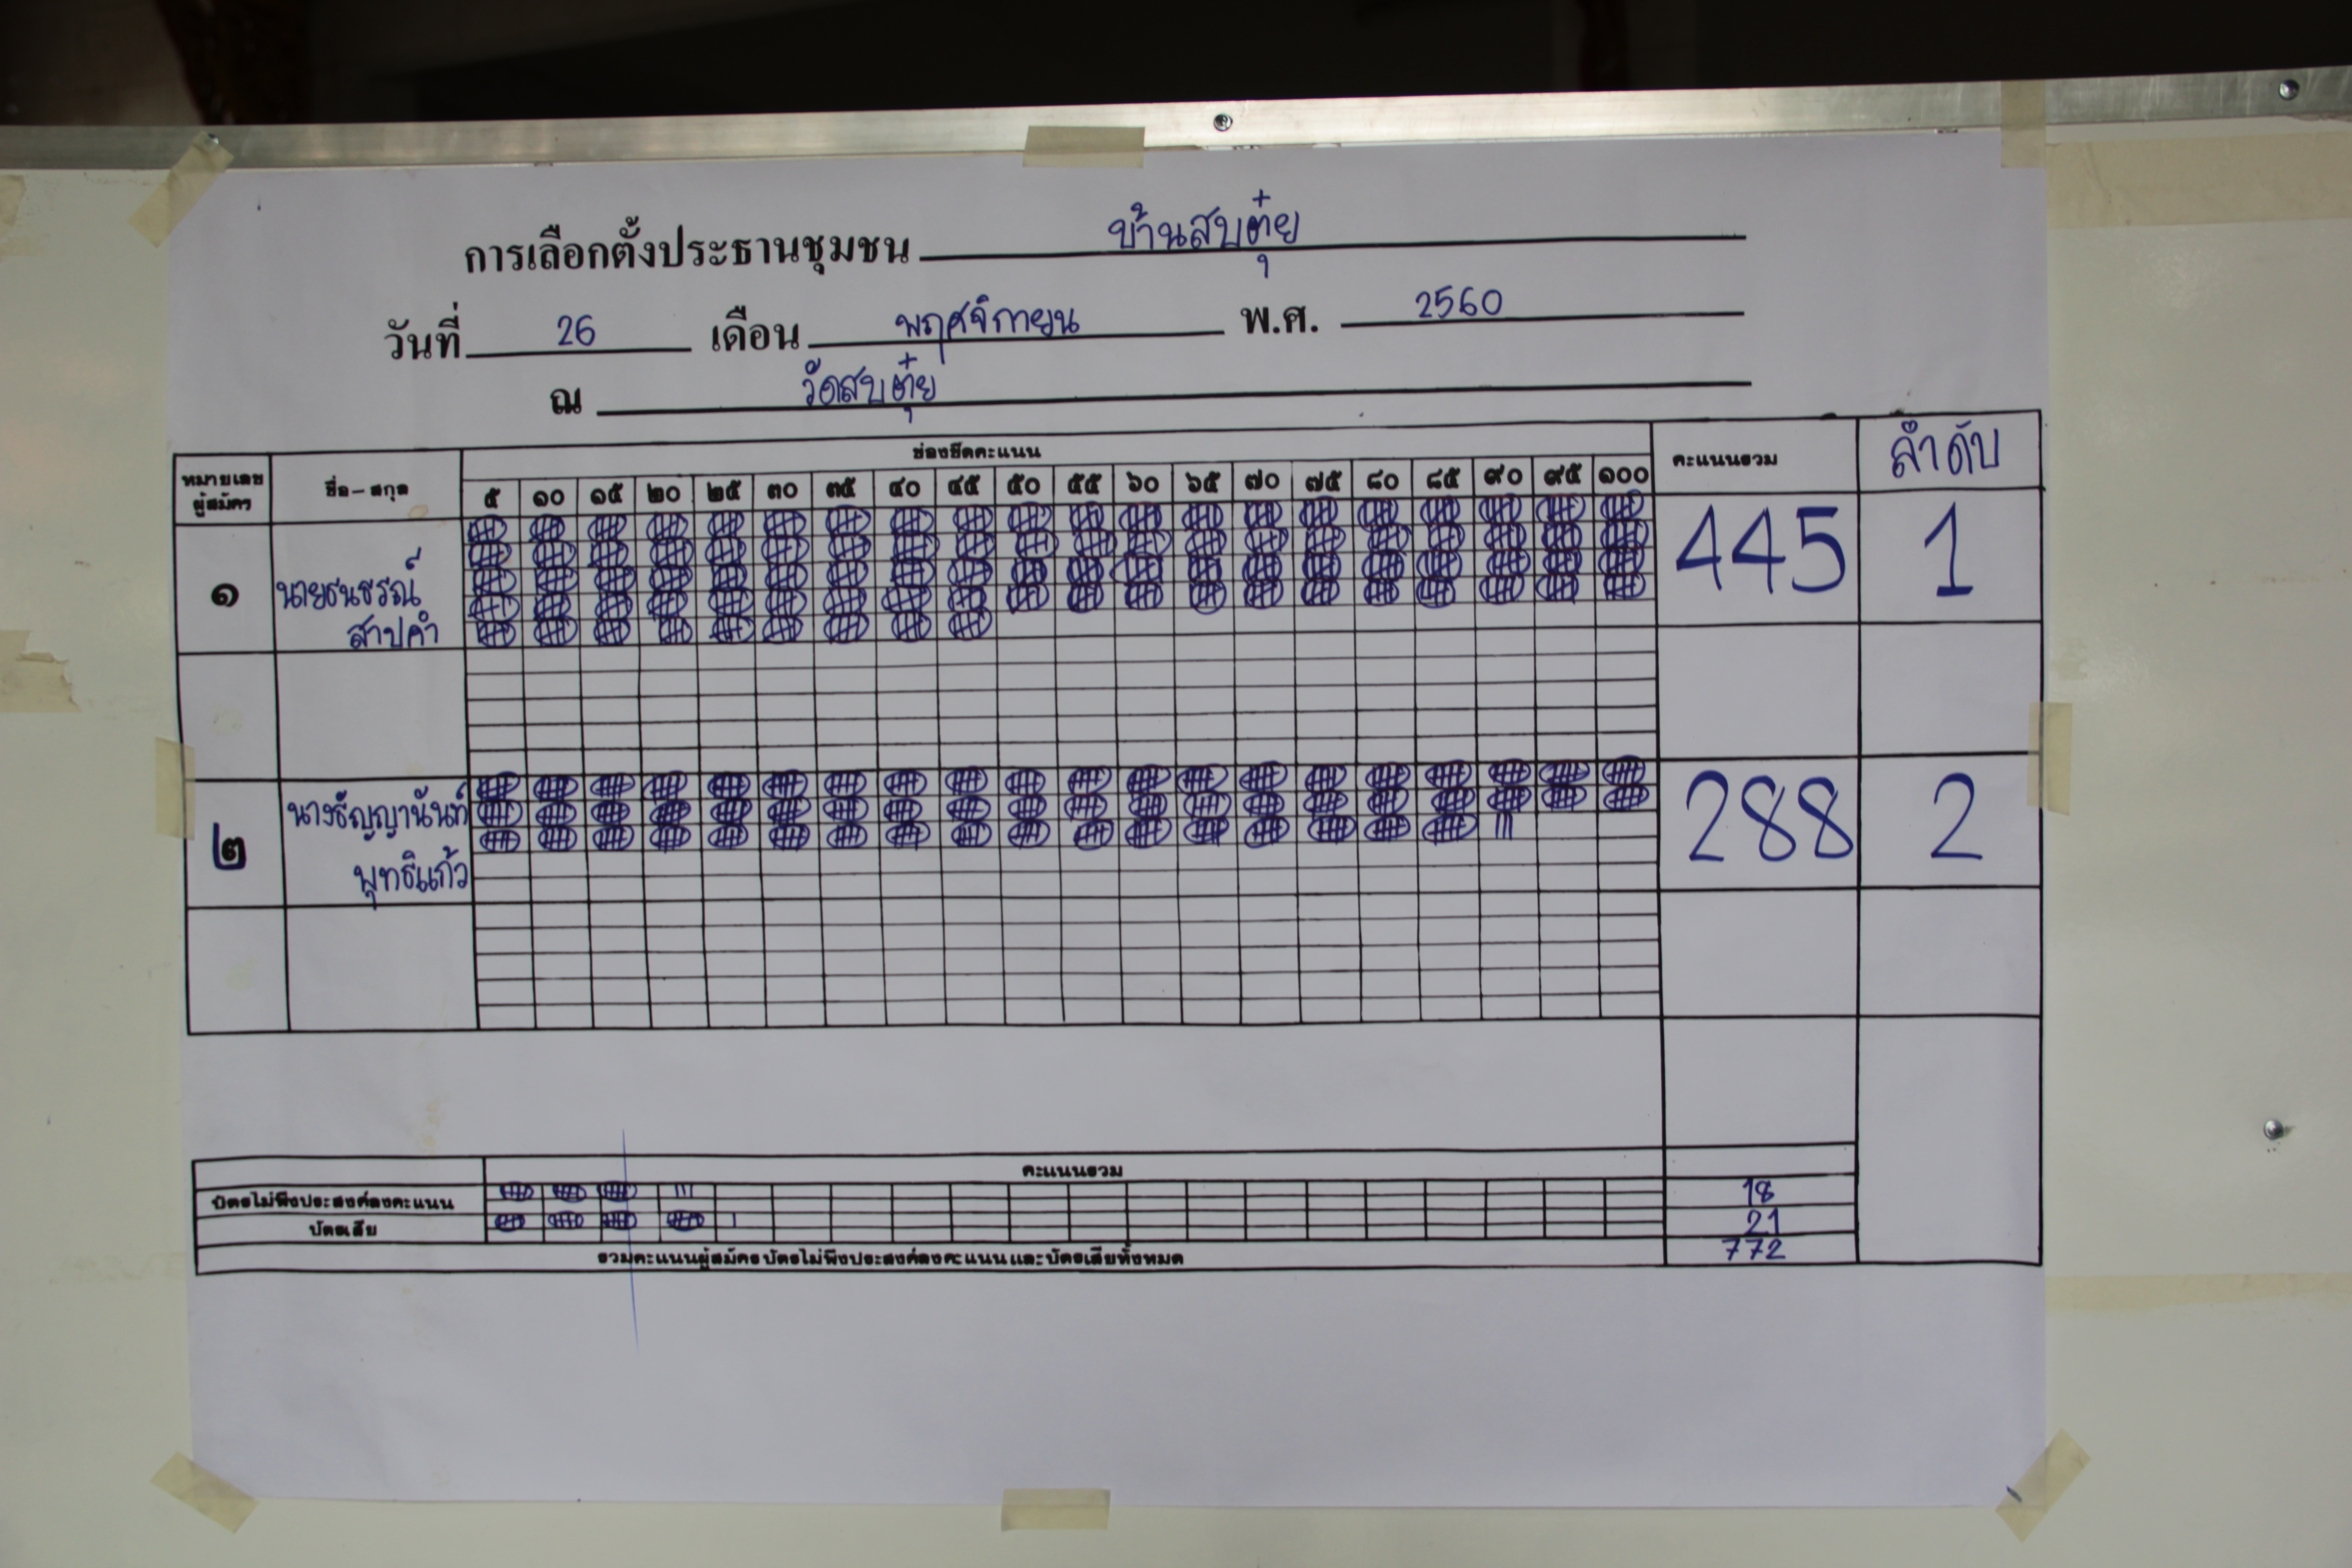 การเลือกตั้งประธานชุมชน บ้านสบตุ๋ย
วันที่ 26 เดือน พฤศจิกายน พ.ศ. 2560
ณ วัดสบตุ๋ย
หมายเลขผู้สมัคร ชื่อ-สกุล ช่องขีดคะแนน คะแนนรวม ลำดับ
๕ ๑๐ ๑๕ ๒๐ ๒๕ ๓๐ ๓๕ ๔๐ ๔๕ ๕๐ ๕๕ ๖๐ ๖๕ ๗๐ ๗๕ ๘๐ ๘๕ ๙๐ ๙๕ ๑๐๐
๑ นายธนธรณ์ 445 1
สาปคำ
๒ นางธัญญานันท์ 288 2
พุทธิแก้ว
คะแนนรวม
บัตรไม่พึงประสงค์ลงคะแนน 18
บัตรเสีย 21
รวมคะแนนผู้สมัคร บัตรไม่พึงประสงค์ลงคะแนน และบัตรเสียทั้งหมด 772